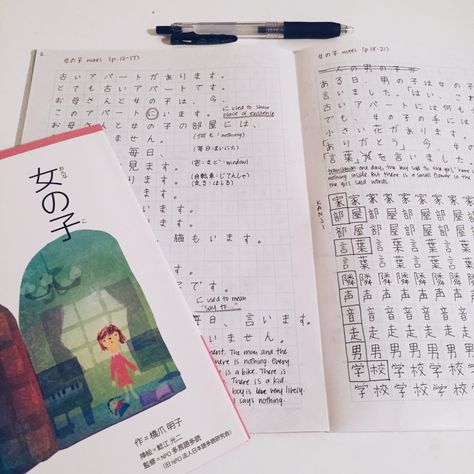 女の子 notes (p.12-17)
古いアパートがあります。
とても古いアパートです。
お母さんと女の子は、今、
アパートにいます。
に used to show place of existence
お母さんと女の子の部屋には、
(何も/nothing)
毎日、
(毎日・まいにち)
見ます。
(窓・まど・window)
(自転車・じてんしゃ)
ます。
(走る・はしる)
猫もいます。
です。
に used to mean "say to..."
毎日、言います。
ません。
The mom and the
here is nothing. Every
is a bike. There is
There is a kid
boy is very lively.
says nothing.
女の子 notes (p.18-21)
一人の男の子
ある日、男の子は女の子
言いました。「はい、こ
古いアパートには何も
でも、女の子の手には
小さい花があります。
「ありがとう」今、女の
「言葉」を言いました。
translation: one day, the boy said to the girl, "here
nothing inside but there is a small flower in the
the girl said words.
KANJI
家家家家家家
部屋部屋部屋
部屋部屋部屋
言葉言葉言葉
言葉言葉言葉
隣隣隣隣隣隣
声声声声声声
音音音音音音
走走走走走走
男男男男男男
学校学校学校
学校学校学校
おんな
女の子
こ
作=橋爪 明子
挿絵=鯰江 光二
監修=NPO 多言語多読
(旧 NPO 法人日本語多読研究会)